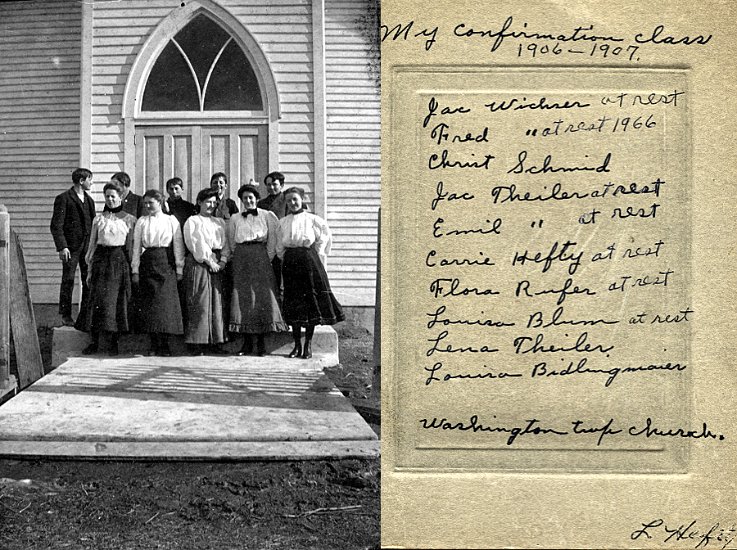 My confirmation class
1906-1907.
Jac Wichser at rest
Fred " at rest 1966
Christ Schmid
Jac Theiler at rest
Emil " at rest
Carrie Hefty at rest
Flora Rufer at rest
Louisa Blum at rest
Lena Theiler
Louisa Bidlingmaier
Washington twp church.
L Hefty